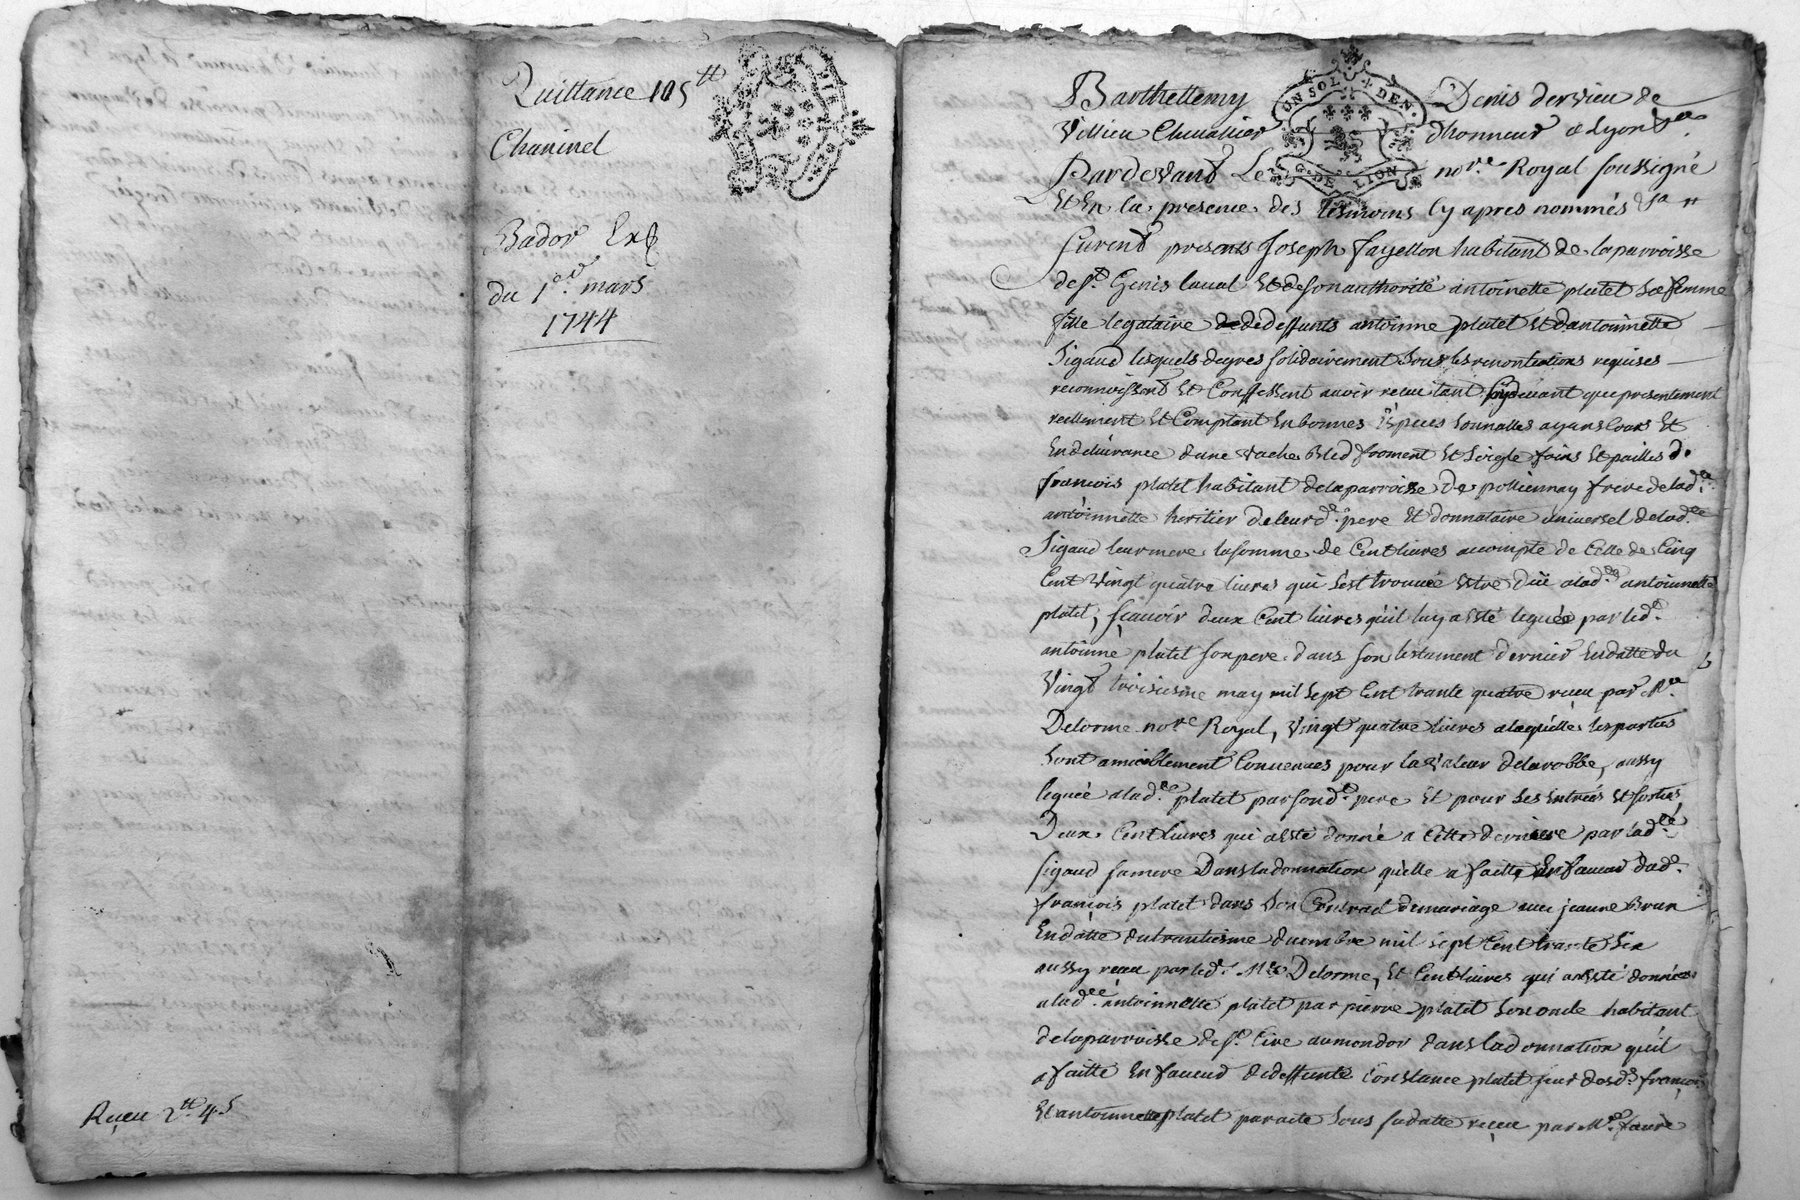 Quittance 105tt
Chaninel
Bador Exp
du 1er mars
1744
Reçeu 2tt 4s
Barthellemy Denis dervieu de
Villieu Chevallier dhonneur a Lyon
UN SOL DEN
G. DE LION
Pardevant Le nore Royal soussigné
Et En la presence des tesmoins Cy apres nommés
furent presents Joseph fayellon habitant de la parroisse
de st Genis laval Et de son authorité antoinette platet sa femme
fille legataire de deffunts antoinne platet Et dantoinnette
Sigaud lesquels de gres solidairement sous les renontiations requises
reconnoissent Et Confessent avoir receu tant cydevant que presentement
reellement Et Comptant En bonnes Especes sonnalles ayans Cours Et
En delivrance dune vache bled froment Et Seigle foins Et pailles de
françois platet habitant de la parroisse De polliennay frere de lade
antoinnette heritier de leurde pere Et donnataire universel de lade
Sigaud leur mere la somme de Cent livres a compte de Celle de Cinq
Cent Vingt quatre livres qui sest trouvée Estre düe a lade antoinnette
platet, sçavoir deux Cent livres quil luy a esté leguée par led
antoinne platet son pere dans son testament dernier En datte du
Vingt troisiesme may mil sept Cent trante quatre reçeu par Me
Delorme nore Royal, Vingt quatre livres a laquelle les parties
sont amicablement Convenues pour la valeur de la robbe, aussy
leguée a lade platet par sond pere Et pour ses Entrées Et sorties,
Deux Cent livres qui a esté donné a Cette derniere par lade
Sigaud sa mere Dans la donnation qu'elle a faitte En faveur dud
françois platet dans son Contract de mariage avec jeanne Brun
En datte du trantiesme decembre mil sept Cent trante six
aussy reçeu par led Me Delorme, Et Cent livres qui a esté données
a lade antoinnette platet par pierre platet son oncle habitant
de la parroisse de st Cire au mondor dans la donnation quil
a faitte En faveur de deffunte Constance platet seur desds françois
Et antoinnette platet par acte sous sa datte reçeu par Me faure